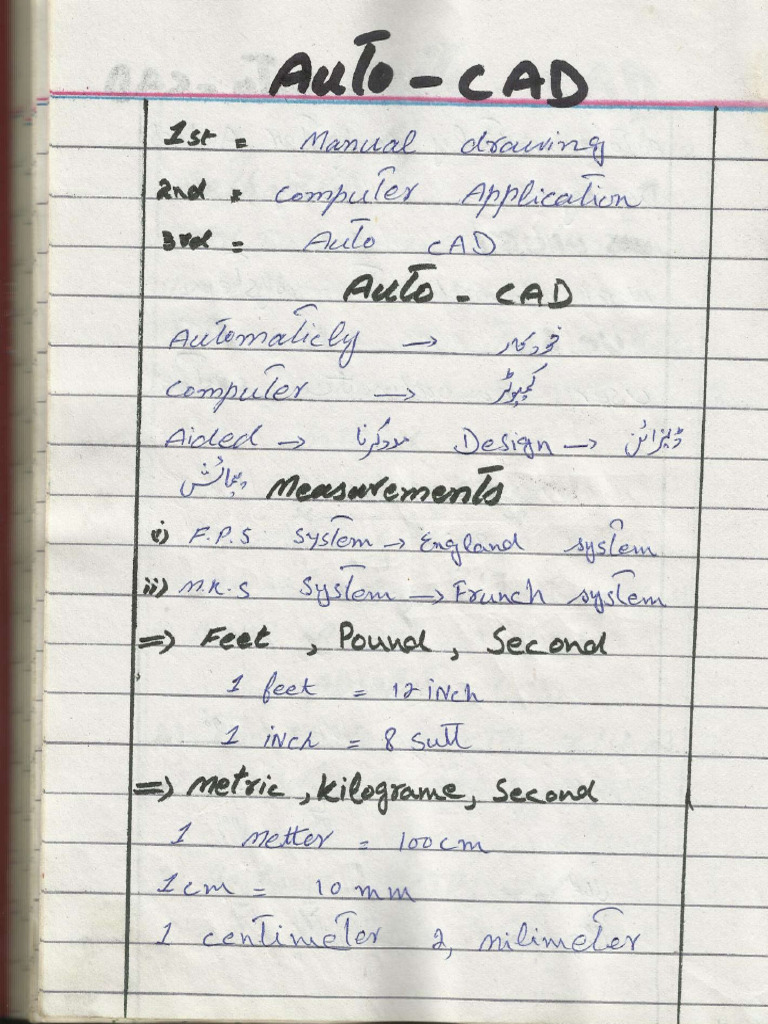 Auto - CAD
1st = Manual drawing
2nd = Computer Application
3rd = Auto CAD
Auto - CAD
Automaticly → خودکار
Computer → کمپیوٹر
Aided → مدد کرنا Design → ڈیزائن
پیمائش Measurements
i) F.P.S system → England system
ii) M.K.S System → Frunch system
⇒ Feet , Pound , Second
1 feet = 12 inch
1 inch = 8 Sutt
⇒ Metric , Kilograme, Second
1 metter = 100 cm
1 cm = 10 mm
1 centimeter 2, milimeter